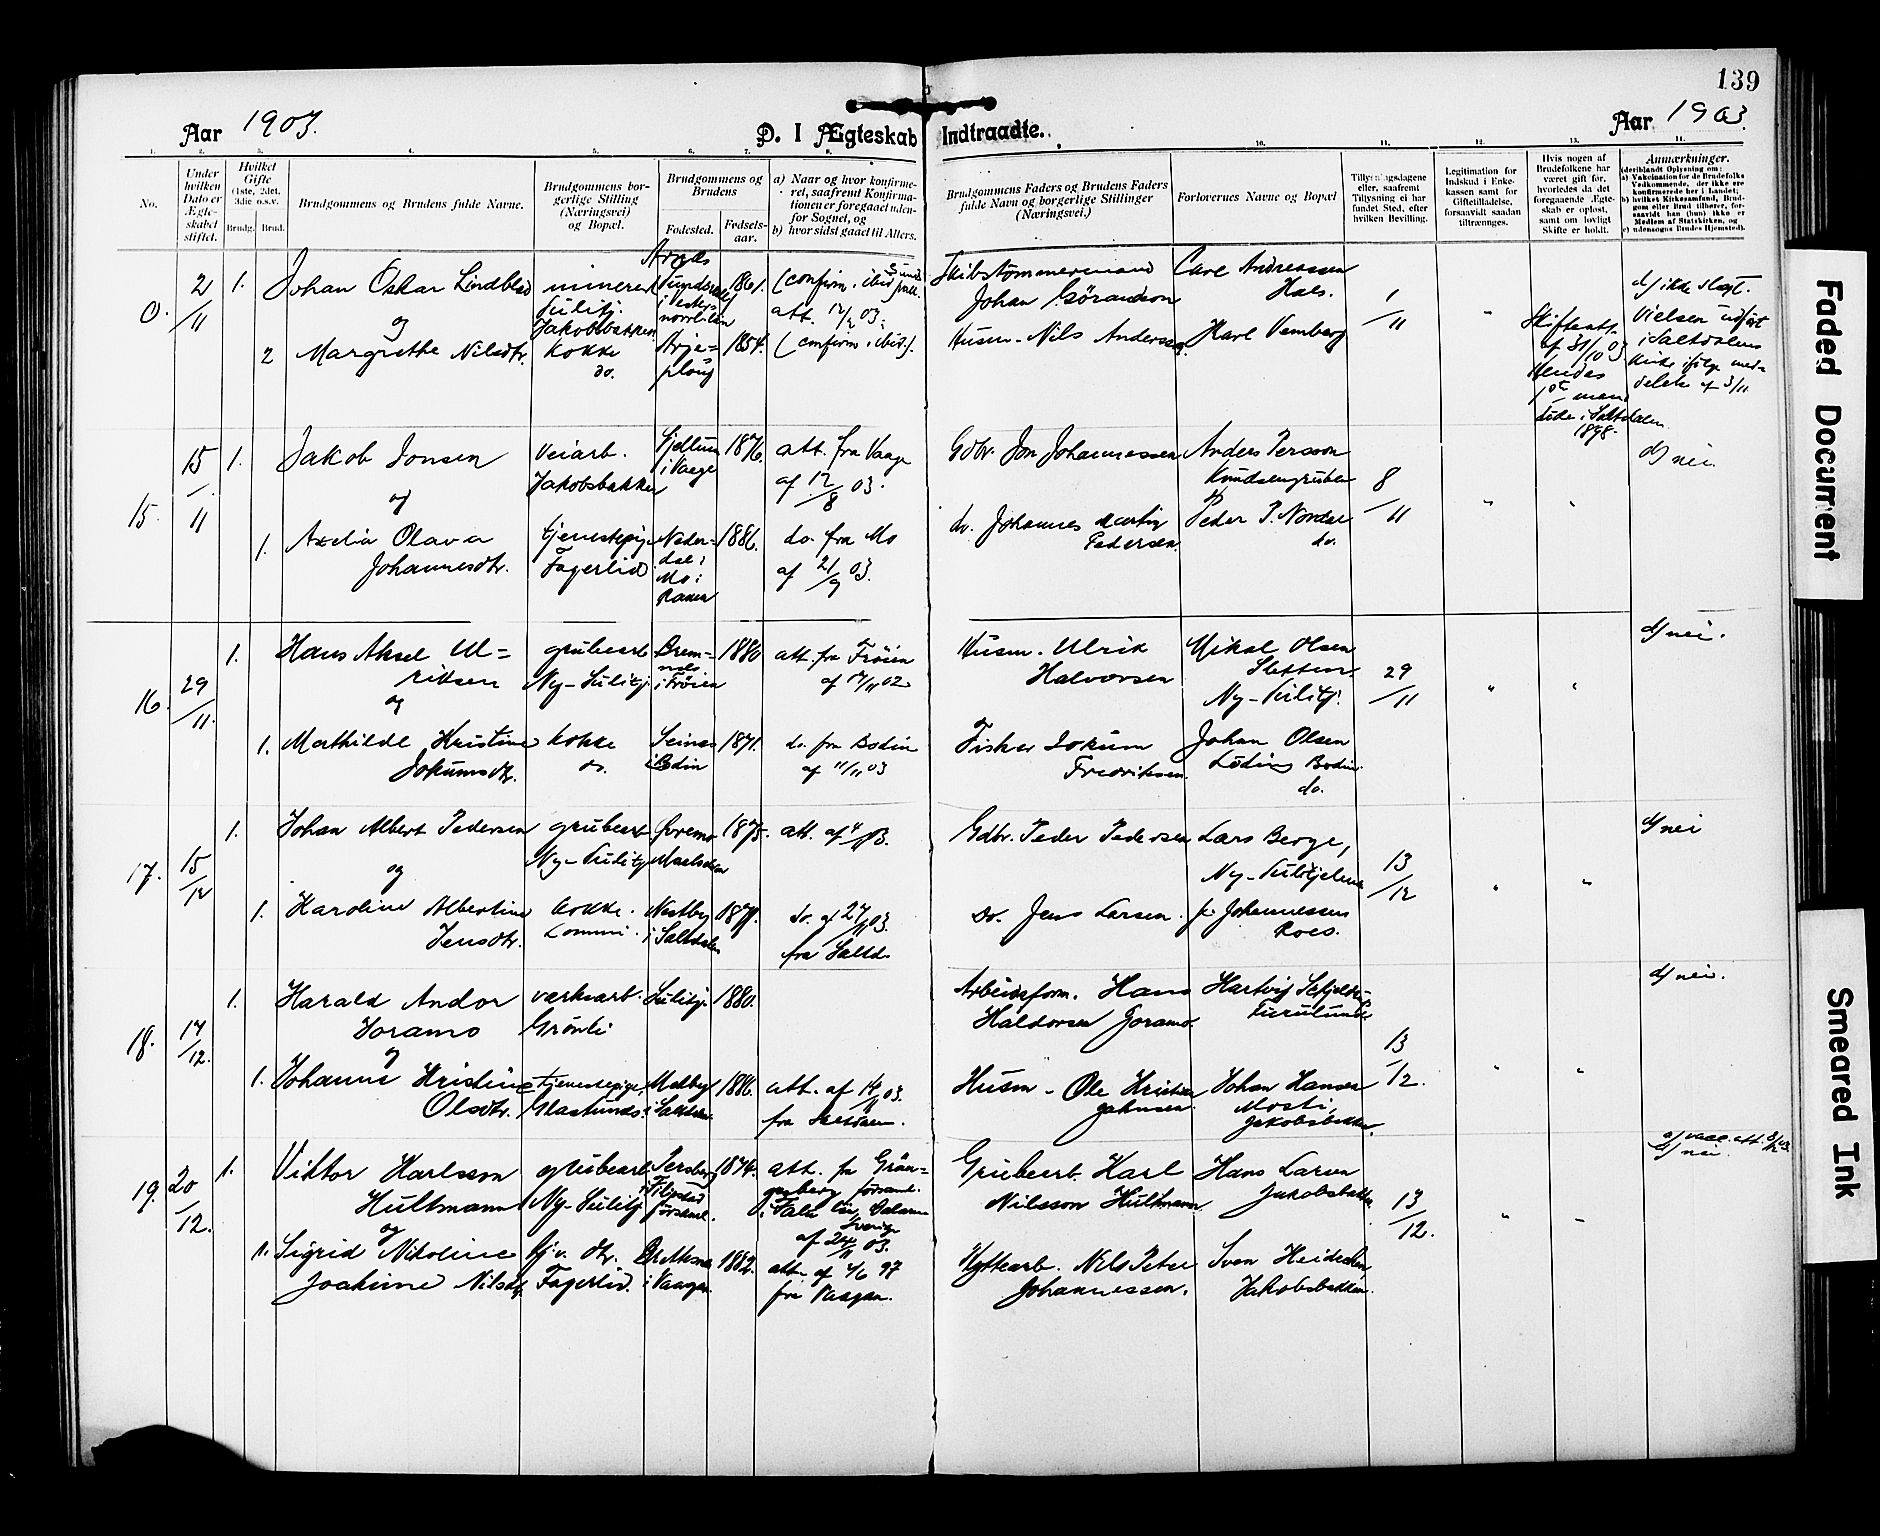 139
Aar 1903.
D. I Ægteskab Indtraadte.
Aar 1903.
No.
Under hvilken Dato er Ægteskabet stiftet.
Hvilket Gifte (1ste, 2det, 3die o.s.v.
Brudg. Brud.
Brudgommens og Brudens fulde Navne.
Brudgommens borgerlige Stilling (Næringsvei) og Bopæl.
Brudgommens og Brudens
Fødested. Fødselsaar.
a) Naar og hvor konfirmeret, saafremt Konfirmationen er foregaaet udenfor Sognet, og
b) hvor sidst gaaet til Alters.
Brudgommens Faders og Brudens Faders fulde Navn og borgerlige Stillinger (Næringsvei.)
Forlovernes Navne og Bopæl
Tillysningsdagene eller, saafremt Tillysning ei har fundet Sted, efter hvilken Bevilling.
Legitimation for Indskud i Enkekassen samt for Giftetilladelse, forsaavidt saadan tiltrænges.
Hvis nogen af Brudefolkene har været gift før, hvorledes da det foregaaende Ægteskab er opløst, samt om lovligt Skifte er holdt.
Anmærkninger.
(deriblandt Oplysning om:
a) Vakcination for de Brudefolks Vedkommende, der ikke ere konfirmerede her i Landet;
b) hvilket Kirkesamfund, Brudgom eller Brud tilhører, forsaavidt han (hun) ikke er Medlem af Statskirken, og
c) udensogns Brudes Hjemsted).
0. 2/11 1. Johan Oskar Lindblad
minerer Sulitj. Jakobsbakken
1861.
att. 17/2 03.
Skibstømmermand Johan Göransson
Carl Andreassen Hals.
1/11
d) ikke slægt.
Vielsen udført i Saltdalens Kirke ifølge meddelelse af 3/11
og
2 Margrethe Nilsdtr.
kokke do.
Arjeploug 1854.
(confirm. ibid.).
Husm. Nils Anderssen.
Karl Vemberg
Skifteatt. af 31/10 03
Hendes 1st mand døde i Saltdalen 1898.
15. 15/11 1. Jakob Jonsen
Veiarb. Jakobsbakken
i Vaage 1876.
att. fra Vaage af 12/8 03.
Gdbr. Jon Johannessen
Anders Persson Knudsengruben
8/11
d) nei.
og
1. Axelia Olava Johannesdtr.
tjenestepige Fagerlid
Nederdal i Mo i Ranen 1886.
do. fra Mo af 21/9 03.
do. Johannes Martin Pedersen.
Peder P. Nordal do.
16. 29/11 1. Hans Aksel Ulriksen
grubearb Ny-Sulitj.
Dremnes i Frøien 1880
att. fra Frøien af 17/11 02
Husm. Ulrik Halvorsen
Mikal Olsen Sletten. Ny-Sulitj.
29/11
d) nei.
og
1. Mathilde Kristine Jokumsdtr.
kokke do.
Seines i Bodin 1871.
do. fra Bodin af 11/11 03
Fisker Jokum Fredriksen.
Johan Olsen Løding Bodin. do.
17. 15/12 1. Johan Albert Pedersen
grubearb Ny-Sulitj.
Maalselven 1875.
Gdbr. Peder Pedersen
Lars Berge, Ny-Sulitjelma
13/12
d) nei
og
1. Karoline Albertine Jensdtr.
kokke. Lommi.
Nestby i Saltdalen
do. af 27/11 03. fra Saltd.
do. Jens Larsen.
Johannessen Roes.
18. 17/12. 1. Harald Andor Joramo
verksarb. Grönli
Sulitj. 1880.
Arbeidsform. Hans Haldorsen Joramo.
Hartvig Furulund
13/12.
d) nei.
og
1. Johanne Kristine Olsdtr.
tjenestepige, Glastunes
i Saltdalen 1886.
att. af 14/11 03. fra Saltdalen.
Husm. Ole Kristian Johnsen.
Johan Hansen Mosti, Jakobsbakken.
19. 20/12. 1. Viktor Karlsson Hultmann
grubearb. Ny-Sulitj
Persberg i Filipstad församl. 1874.
att. fra Grängesberg församl. i Falu län, Dalarne Sverige af 24/11 03.
Grubearb. Karl Nilsson Hultmann
Hans Larsen Jakobsbakken
13/12.
a) vacc. att.
d) nei.
og
1. Sigrid Nikoline Joakime Nilsdtr.
hj.v. dtr. Fagerlid.
i Vaagan. 1882.
att. af 4/6 97 fra Vaagan.
Hyttearb. Nils Peter Johannessen.
Sven Jakobsbakken.
Faded Document
Smeared Ink